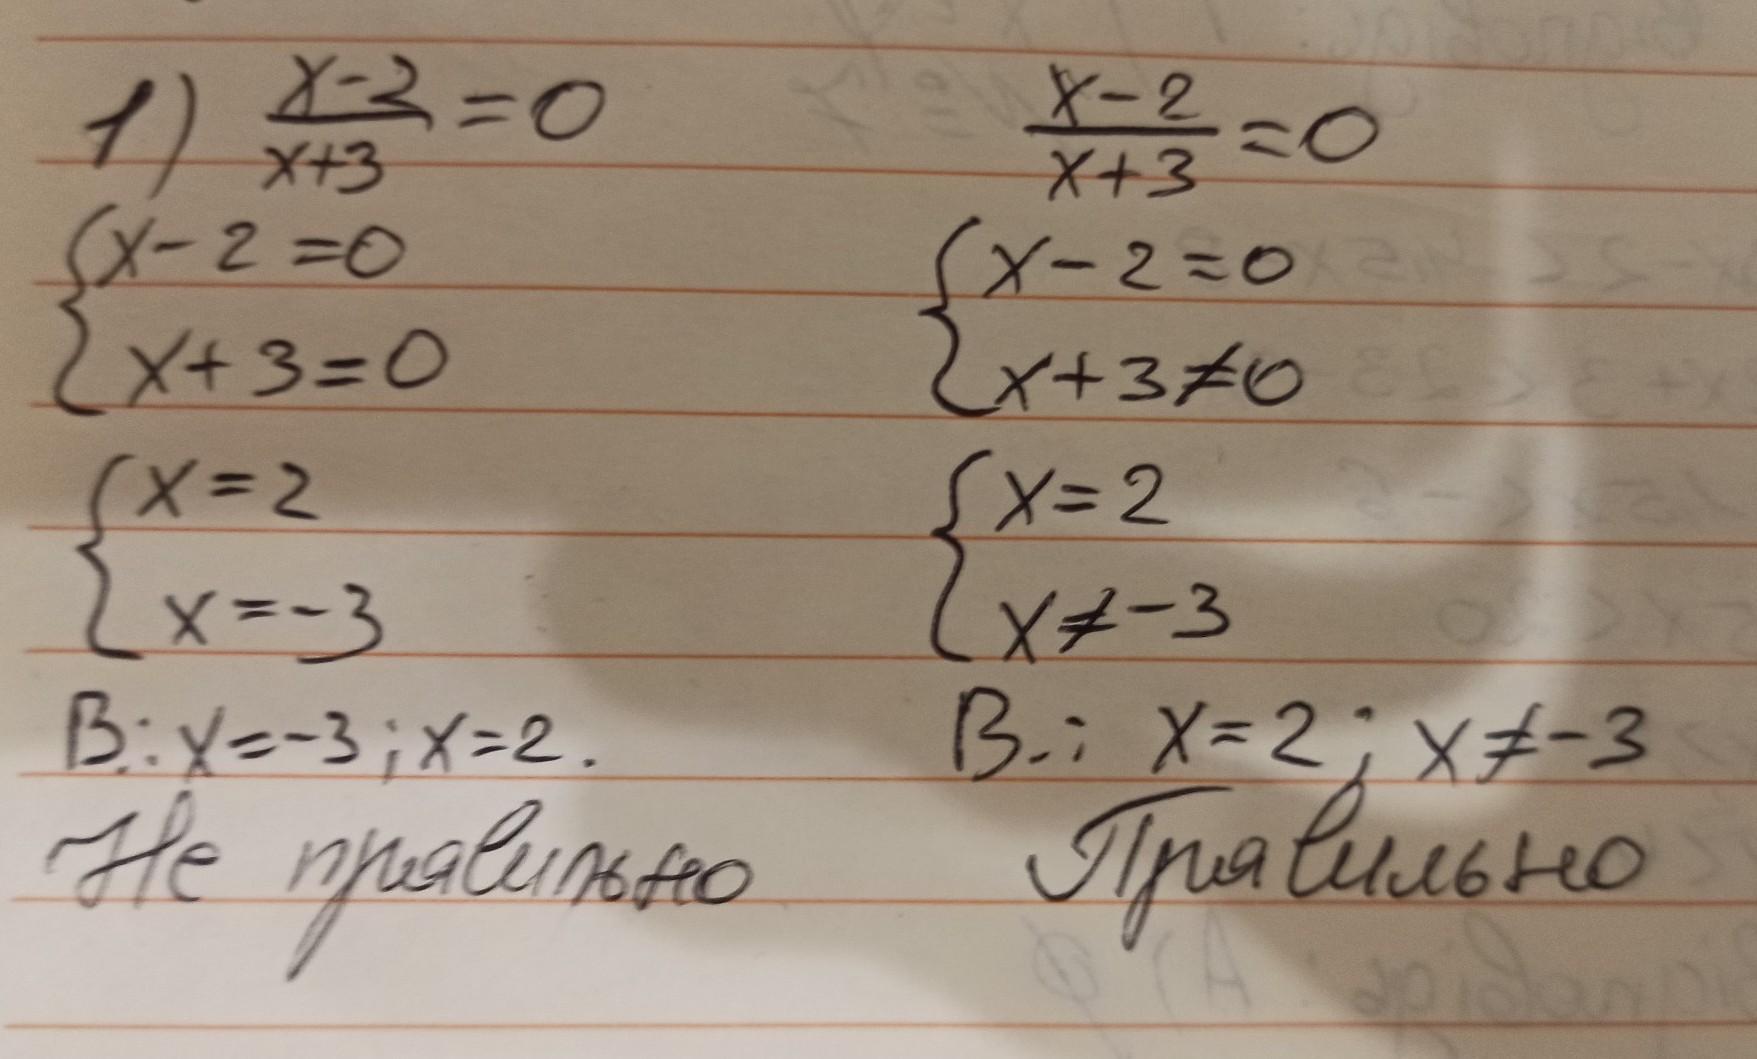 1) (x-2)/(x+3) = 0
{ x-2=0
x+3=0
{ x=2
x=-3
В.: x=-3; x=2.
Не правильно
(x-2)/(x+3) = 0
{ x-2=0
x+3≠0
{ x=2
x≠-3
В.: x=2; x≠-3
Правильно